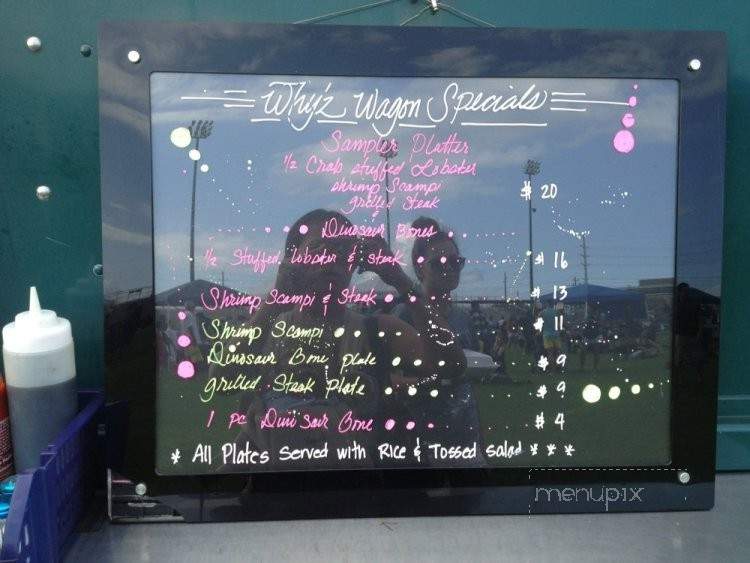 Why'z Wagon Specials
Sampler Platter
1/2 Crab stuffed Lobster
shrimp Scampi $20
grilled Steak
&
Dinosaur Bones
1/2 Stuffed lobster & steak $16
Shrimp Scampi & Steak $13
Shrimp Scampi $11
Dinosaur Bone plate $9
grilled Steak Plate $9
1 pc Dinosaur Bone $4
* All Plates Served with Rice & Tossed salad * * *
menupix